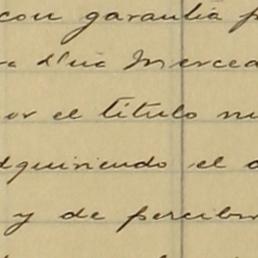 con garantía p
ra Dña Merced
or el título nu
dquiriendo el d
y de percibir